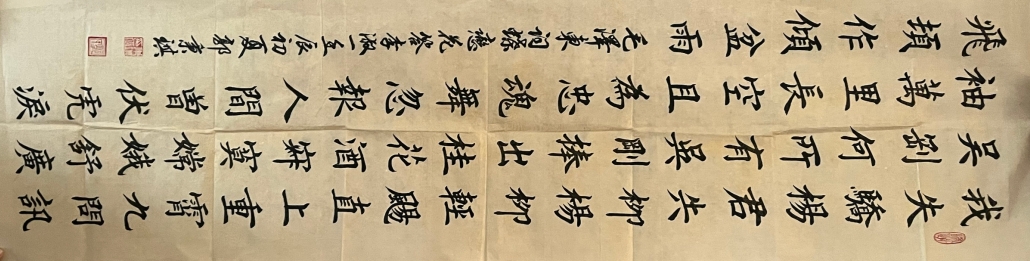 我失驕楊君失柳楊柳輕颺直上重霄九問訊
吳剛何所有吳剛捧出桂花酒寂寞嫦娥舒廣
袖萬里長空且為忠魂舞忽報人間曾伏虎淚
飛頓作傾盆雨 毛澤東詞蝶戀花答李淑一 壬辰初夏 郭